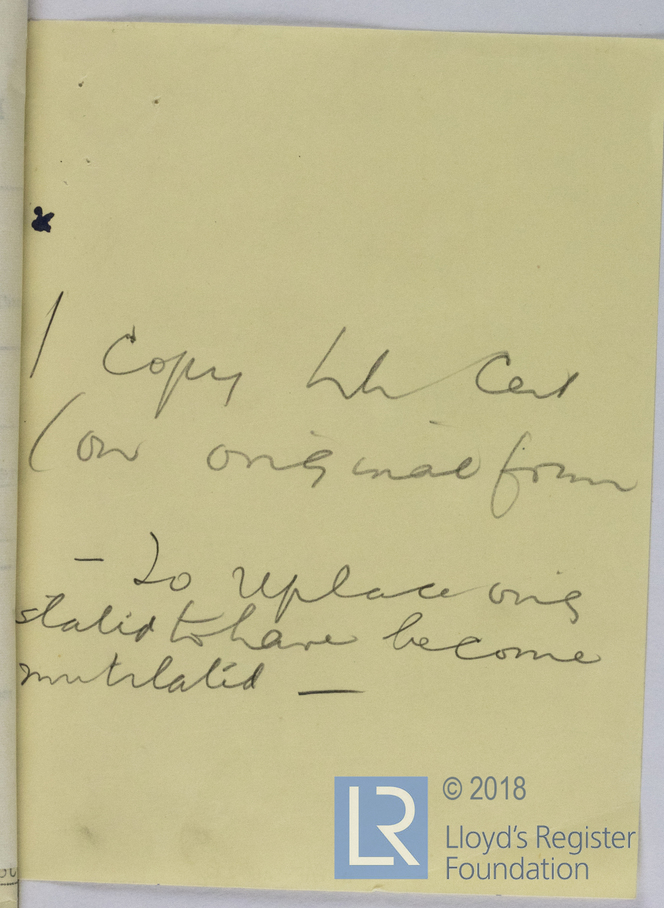 1 Copy Cert
(on original form
- To replace orig
stated to have become
mutilated -
LR
© 2018
Lloyd's Register
Foundation